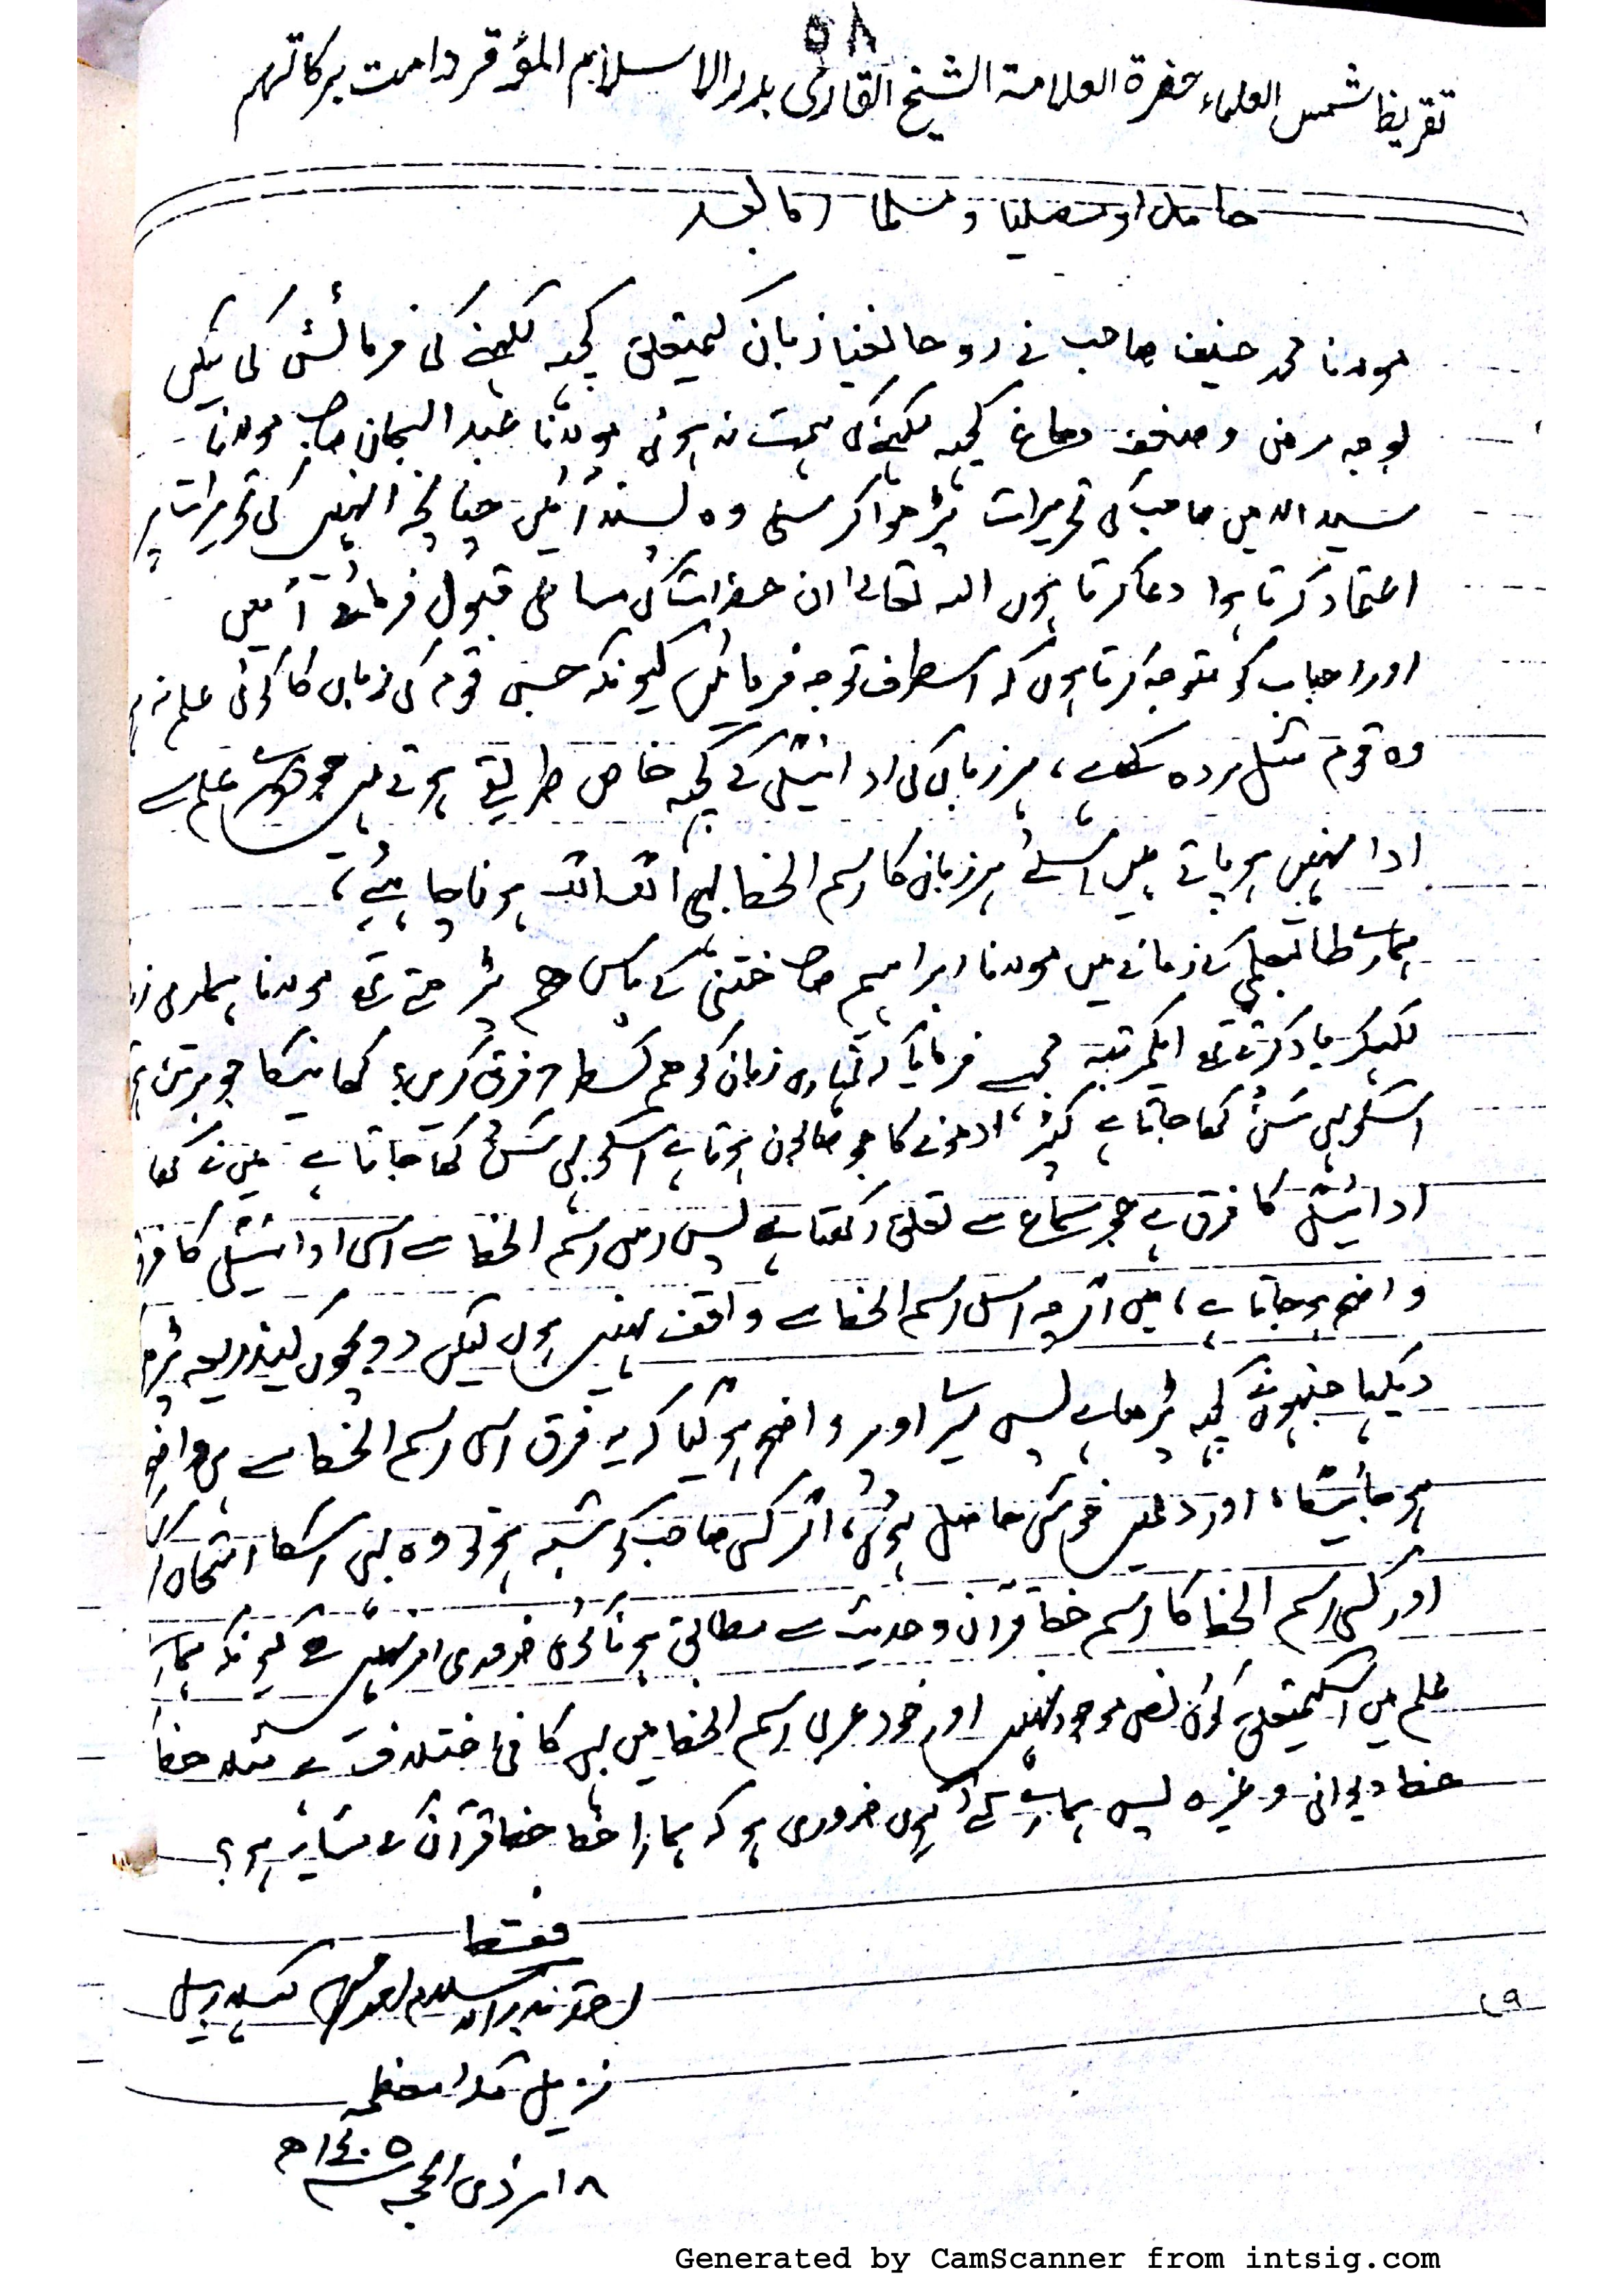 ٥٨
تقریظ شمس العلماء حضرة العلامة الشیخ القاری بدر الاسلام المؤقر دامت برکاتہم
حامدا و مصلیا و مسلما اما بعد
مولانا محمد حنیف صاحب نے روحانغیا زبان کیمتعلق کچھ لکھنے کی فرمائش کی لیکن
بوجہ مرض وضعف دماغ کچھ لکھنے کی ہمت نہ ہوئی مولانا عبد السبحان صاحب مولانا
سید الامین صاحب کی تحریرات پڑھواکر سنی وہ پسند آئیں چنانچہ انہیں کی تحریرات پر
اعتماد کرتا ہوا دعا کرتا ہوں اللہ تعالےٰ ان حضرات کی مساعی قبول فرمائے آمین
اور احباب کو متوجہ کرتا ہوں کہ اسطرف توجہ فرمائیں کیونکہ جس قوم کی زبان کا کوئی علم نہ ہو
وہ قوم مثل مردہ کے ہے، ہر زبان کی ادائیگی کے کچھ خاص طریقے ہوتے ہیں جو دوسرے علم سے
ادا نہیں ہو پاتے ہیں اسلئے ہر زبان کا رسم الخط بھی الگ الگ ہونا چاہئے،
ہمارے طالبعلمی کے زمانے میں مولانا ابراہیم صاحب ختنی کے پاس ہم پڑھتے تھے مولانا ہماری
لکھکر یاد کرتے تھے ایکمرتبہ مجھسے فرمایا کہ تمہاری زبان کو ہم کسطرح فرق کریں؟ کھانیکا جو برتن ہے
اسکو بھی سَنْ کہا جاتا ہے کپڑا دھونے کا جو صابون ہوتا ہے اسکو بھی سَنْ کہا جاتا ہے میں نے کہا
ادائیگی کا فرق ہے جو سماع سے تعلق رکھتا ہے پس اس رسم الخط سے اسی ادائیگی کا فرق
واضح ہو جاتا ہے، میں اگرچہ اس رسم الخط سے واقف نہیں ہوں لیکن دو بچوں کیذریعہ پڑھوا
دیکھا جنہوں نے کچھ پڑھا ہے پس میرے اوپر واضح ہو گیا کہ یہ فرق اس رسم الخط سے ہی واضح
ہو جائیگا، اور دلمیں خوشی حاصل ہوئی، اگر کسی صاحب کو شبہ ہو تو وہ بھی اسکا امتحان
اور کسی رسم الخط کا رسم خط قرآن وحدیث سے مطابق ہونا کوئی ضروری امر نہیں ہے کیونکہ ہمارے
علم میں اسکیمتعلق کوئی نص موجود نہیں اور خود عربی رسم الخط میں بھی کافی اختلاف ہے مثلا خط
خط دیوانی وغیرہ پس ہمارے لئے کیوں ضروری ہو کہ ہمارا خط خط قرآن کے مشابہ ہو؟
فقط
احقر بدر الاسلام
نزیل مکہ معظمہ
۱۸ ذی الحجہ ١٤٠٥ھ
٩٦
Generated by CamScanner from intsig.com